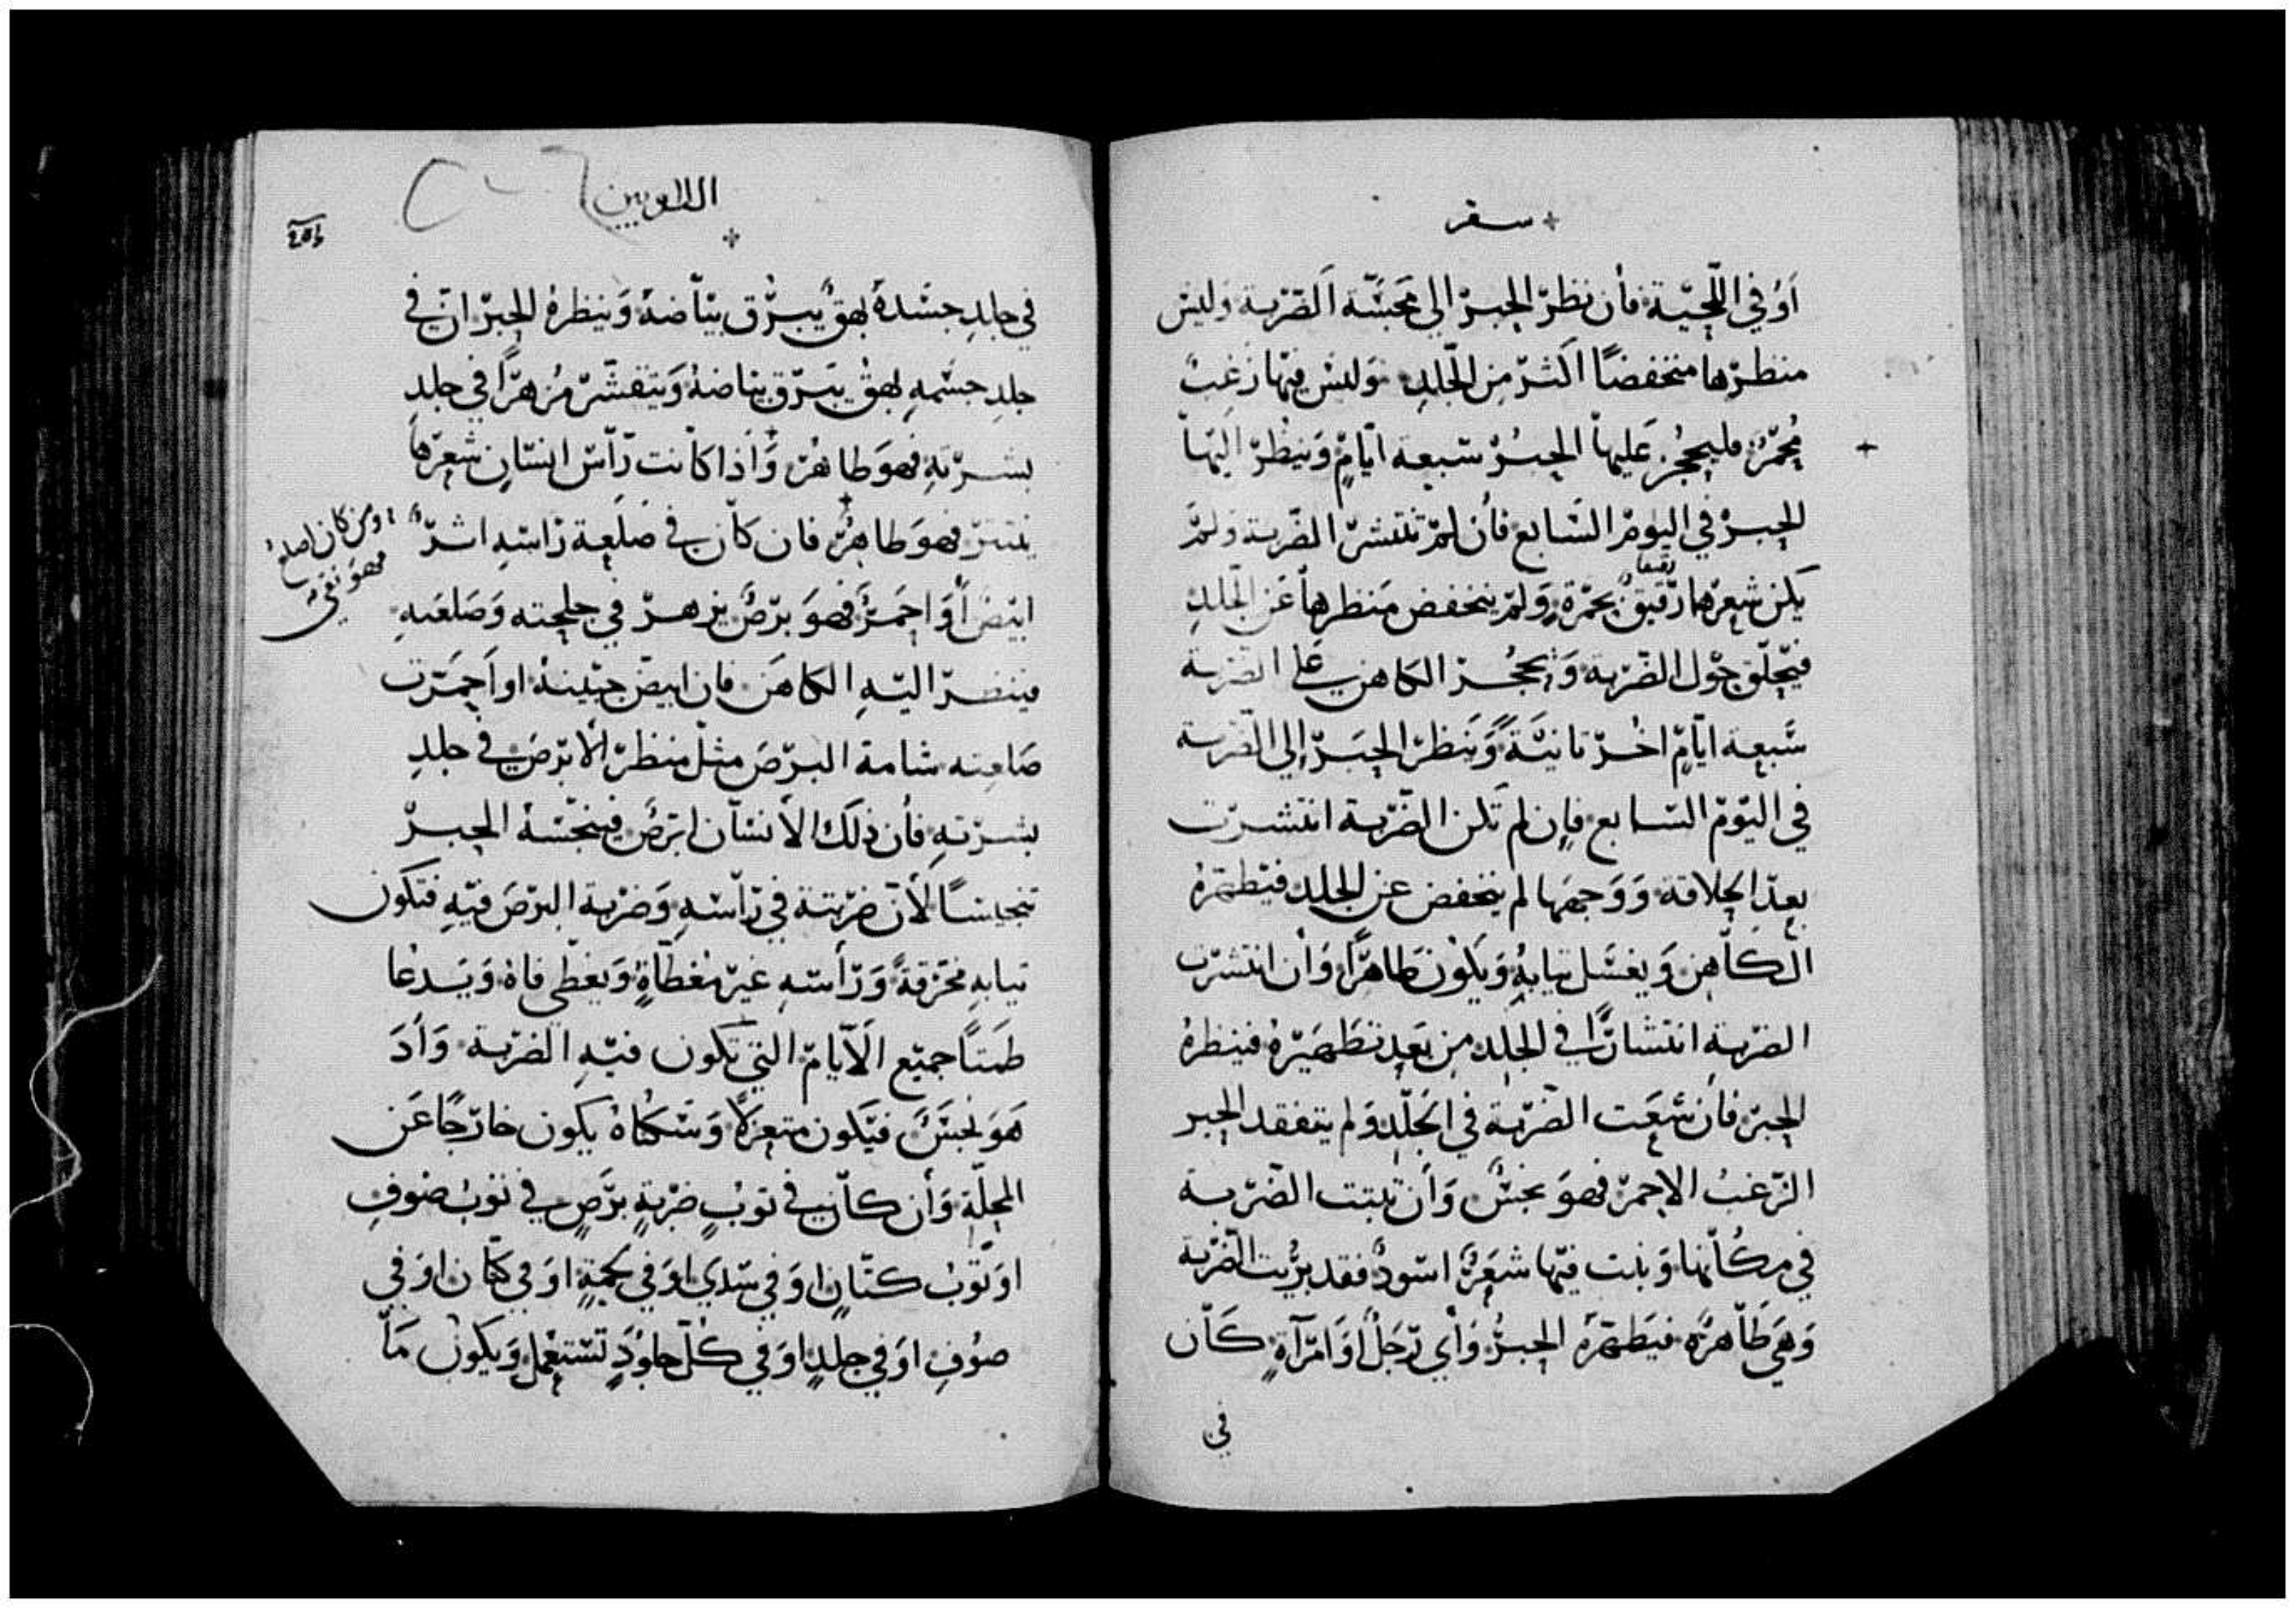 سفر
اَوْ في اللّحيّة فأن نظرّ الحبرّ الي مَجَسَّة اَلضّربة وَليسَ
منظرّها منخفضًا اكثرّ مِن الجّلدِ وَليسَ فيّها زغبٌ
مُحمّرٌ فليحجُز عَليهاّ الحبرُ سَبعة ايّامٍ وَينظُرّ اليّهاّ
الحبرْ في اليومْرِ السَّابع فأن لمّ تنتشرّ الضّربة وَلمَّ
يكن شعرّها رّقيقٌ بحمّرةٍ وَلمّ ينخفض مَنظرهاّ عَن الجّلدِ
فيّحلّق حوّل الضّربة وَيحجُز الكاهن علي الضربة
سَّبعة ايّامٍ اخُرّ تانيَّةً وَينَظرّ الحبَرّ اِلي الضّربة
في اليّومّ السّابع فاِن لم تَكن الضّربة انتشرّت
بعدّ الحِلاقة وَوَجهَها لم ينخفض عن الجلد فيّطهّرهُ
الكاّهن وَيغسَل تيابهُ وَيكَوُن طَاهرًّا وَأن انتشرّت
الضرّبة انتشارًّا في الجَلد مِن بَعدِ تطَهيّرهُ فينظرهُ
الحبرّ فأن سَّعَت الضّربّة في الجَلّدِ وَلم يتفقد الحبر
الزّغبُ الاحمرّ فهوَ نجسٌ وَأن تبتت الضّربة
في مكُاّنها وَنبت فيّها شعَرٌ اسوّدٌ فقد برُيت الضّربة
وَهيَ طاّهرّهٌ فيَطهّرهُ الحبرُ وَأي رّجَلٌ اوَ امرّآةٍ كَاّن
في
اللاويين
في جلدِ جسَدهُ بهقٌ يبرّق بيّاضهُ وَينظرهُ الحبرّ ان في
جلدِ جسّمهِ بهقٌ يبَرّق بياضهُ وَيتقشّرّ مُزهرّاً في جلدِ
بشرّتهِ فهوَ طاهرٌ وَأذا كاّنت رّاسّ انسّانٍ شعرّهاَ
ينتترّ فهوَ طاهِرٌ فان كاّن في صَلعة رّاسّهِ اشرٌّ
اومن كان اصلع
فهوَ نقيّ
ابيّضٌ أوَ احمَرٌّ فهوَ بَرّصٌ يزهرّ في جلحته وَصَلعَتهِ
فينضرّ اليّهِ الكاهَن فان ابيضّ جبيّنهُ اوَ احمَرّت
صَلعته شامة البرّصَ مثلّ منظرّ الأبرّصَ في جلدِ
بشرّتهِ فأن ذلكَ الأنسّان ابَرصٌ فينجّسّهُ الحبرّ
تنجيسًا لأنّ ضرّبتة في رّاسّهِ وَضرّبة البرّصَ فيّهِ فتكَون
تيابهِ مخرّقةً وَرّأسّهِ غيرّ مغطاّةٍ وَيغطّي فاهُ وَيدَعا
طمَتاً جميّع الَايّامّ التي تَكون فيّهِ الضربّة وَأدَ
هَوَ نجسَّ فيّكَون متعزلاً وَسَّكناهُ يكون خارّجًا عَن
المحلّة وَأن كاّن في توبٍ ضرّبةٍ برّصٍ في توبُ صَوفٍ
اوَ توّبُ كتّانٍ اوَ في سّدي اوَ في لحمةٍ اوَ في كتّان اوَ في
صوُفِ اوَ في جلدٍ اوَ في كلّ جلوُدٍ تسّتعمل وَيكوَنُ مَاّ